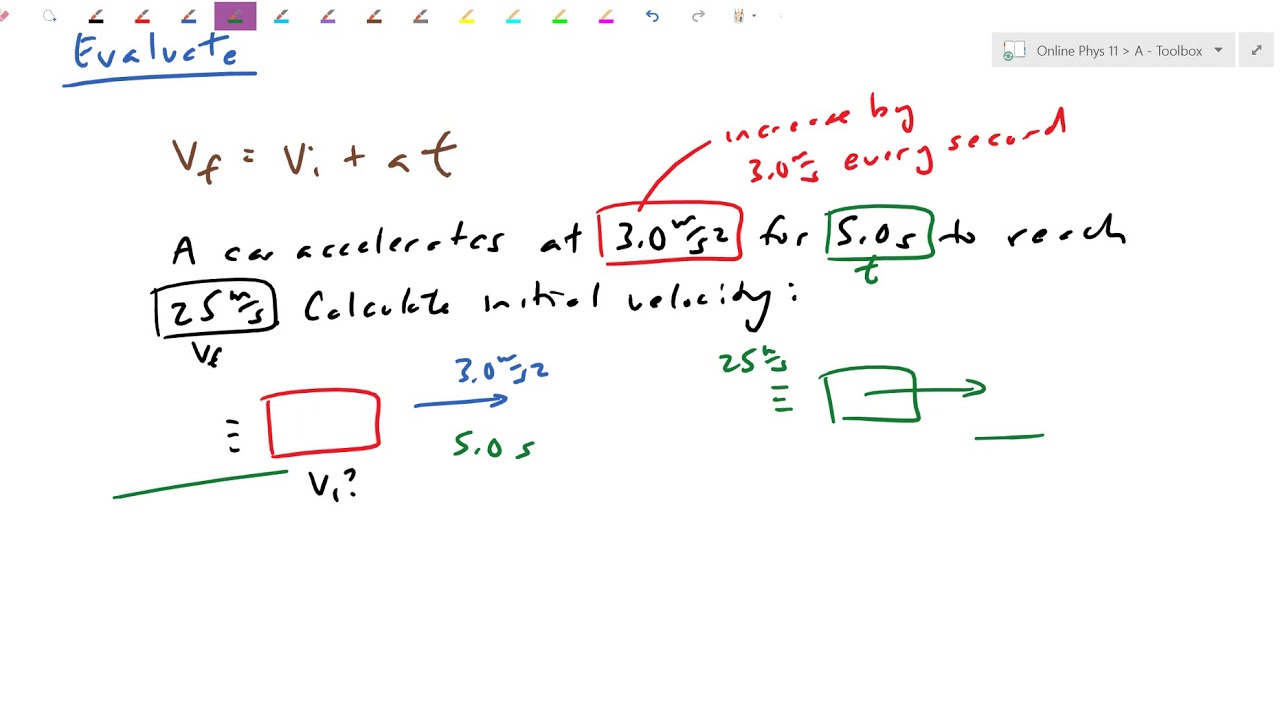 Evaluate
Online Phys 11 > A - Toolbox
Vf = Vi + at
increase by
3.0 m/s every second
A car accelerates at 3.0 m/s2 for 5.0 s to reach
t
25 m/s Calculate initial velocity:
Vf
3.0 m/s2
25 m/s
5.0 s
Vi?